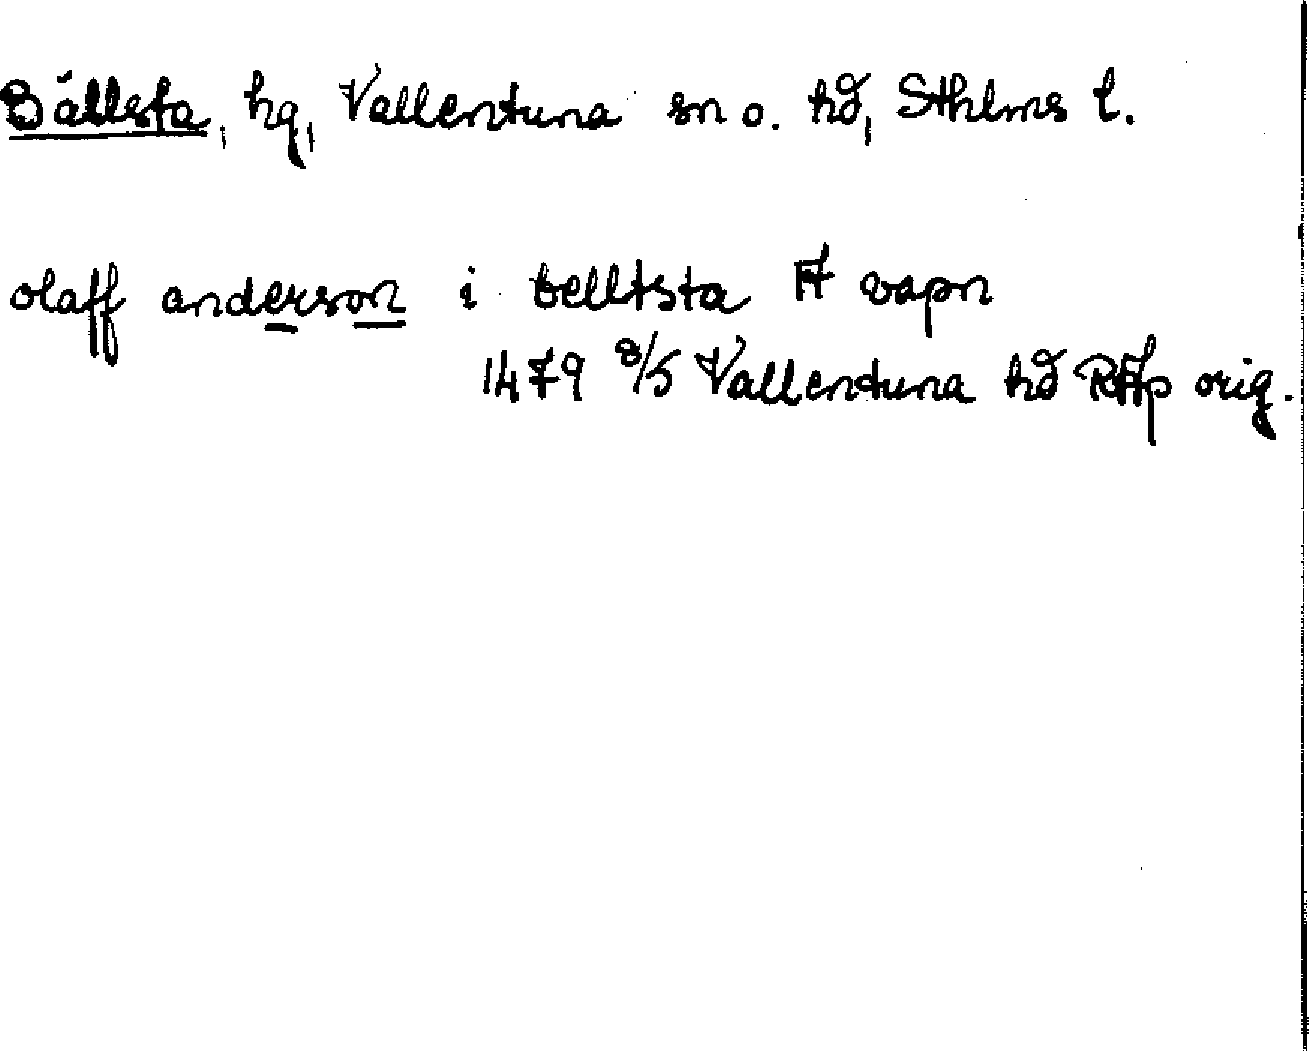 Bällsta, hg, Vallentuna sn o. hd, Sthlms l.
olaff anderson i belltsta Ft vapn
1479 8/5 Vallentuna hd RAp orig.